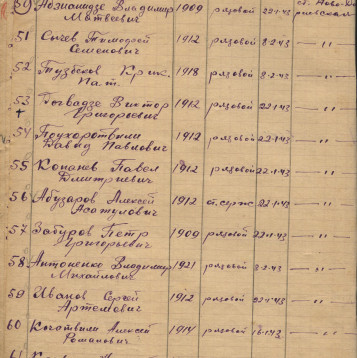 Владимир 1909 рядовой 22-1-43 ст.
Матвеевич
51 Сычев Тимофей 1912 рядовой 8-2-43 —„—
Семенович
52 1918 рядовой 8-2-43 —„—
53 Гогвадзе Виктор 1912 рядовой 22.1.43 —„—
Григорьевич
54 1912 рядовой 22-1-43 —„—
Давид Павлович
55 Копанев Павел 1912 рядовой 22.1.43 —„—
Дмитриевич
56 Абузаров Алексей 1912 ст.серж. 22.1.43 —„—
57 Забуров Петр 1909 рядовой 22-1-43 —„—
Григорьевич
58 Антоненко Владимир 1921 рядовой 8-2-43 —„—
Михайлович
59 Иванов Сергей 1912 рядовой 22-1-43 —„—
Артемович
60 Алексей 1914 рядовой 16.1.43 —„—
Романович